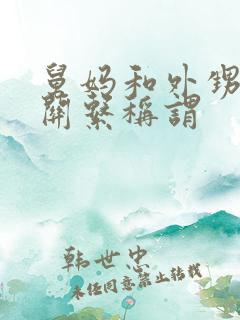 舅妈和外甥
關繫稱謂
韩世忠
未经同意禁止转载